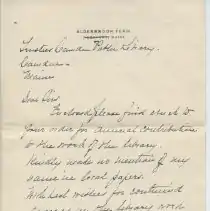 ALDERBROOK FARM
MAINE
Trustees Camden Public Library,
Camden-
Maine
Dear Sirs,
Enclosed please find check to
your order for annual contribution
to the work of the library.
Kindly make no mention of my
name in local papers.
With best wishes for continued
success in the library work